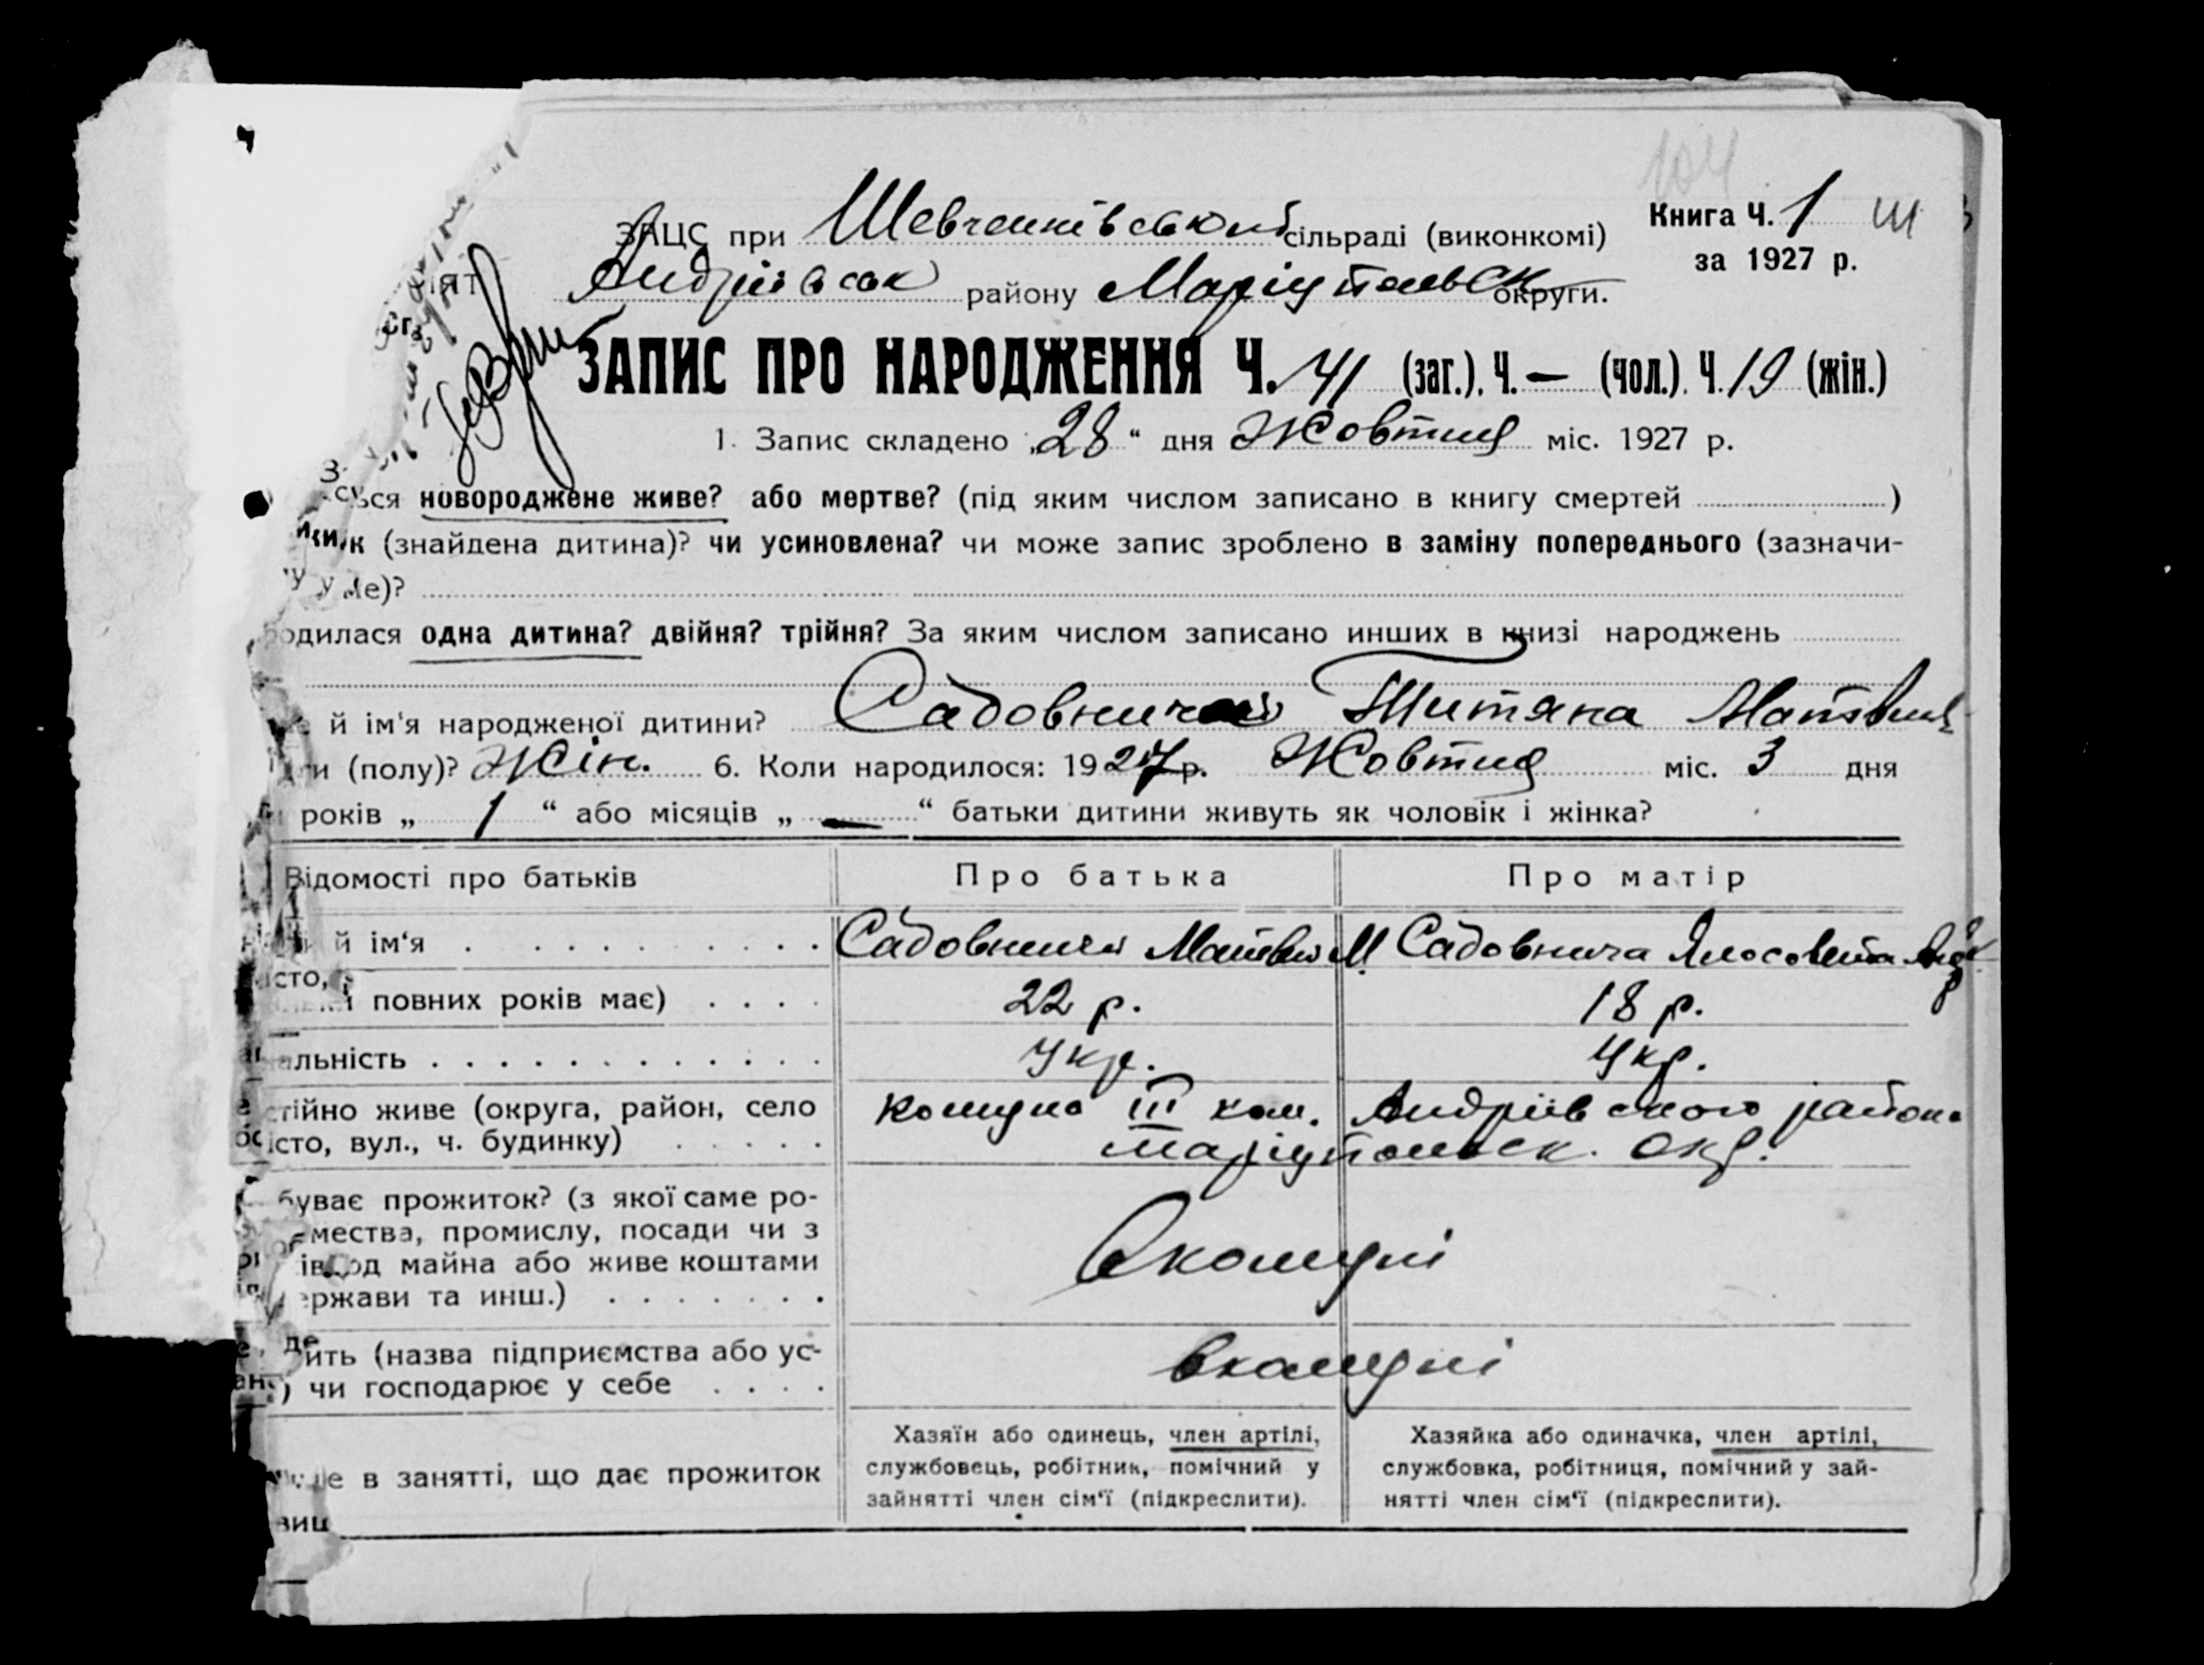 104
ЗАЦС при Шевченківській сільраді (виконкомі) Книга Ч. 1
Андріівськ району Маріупольськ округи. за 1927 р.
ЗАПИС ПРО НАРОДЖЕННЯ Ч. 41 (заг.), Ч. — (чол.). Ч. 19 (жін.)
1. Запис складено „28“ дня Жовтня міс. 1927 р.
новороджене живе? або мертве? (під яким числом записано в книгу смертей )
(знайдена дитина)? чи усиновлена? чи може запис зроблено в заміну попереднього (зазначи-
е)?
одилася одна дитина? двійня? трійня? За яким числом записано инших в книзі народжень
й ім'я народженої дитини? Садовнича Титяна
ти (полу)? Жін. 6. Коли народилося: 1927 р. Жовтня міс. 3 дня
років „ 1 “ або місяців „ — “ батьки дитини живуть як чоловік і жінка?
Відомості про батьків Про батька Про матір
й ім'я Садовничи Матвій М. Садовнича
повних років має) 22 р. 18 р.
альність Укр. Укр.
тійно живе (округа, район, село Комуна III ком. Андріівского района
істо, вул., ч. будинку) маріупольск. окр.
буває прожиток? (з якої саме ро-
мества, промислу, посади чи з
од майна або живе коштами Вкомуні
ержави та инш.)
ить (назва підприємства або ус- вкомуні
) чи господарює у себе
Хазяїн або одинець, член артілі, Хазяйка або одиначка, член артілі,
е в занятті, що дає прожиток службовець, робітник, помічний у службовка, робітниця, помічний у зай-
зайнятті член сім'ї (підкреслити). нятті член сім'ї (підкреслити).